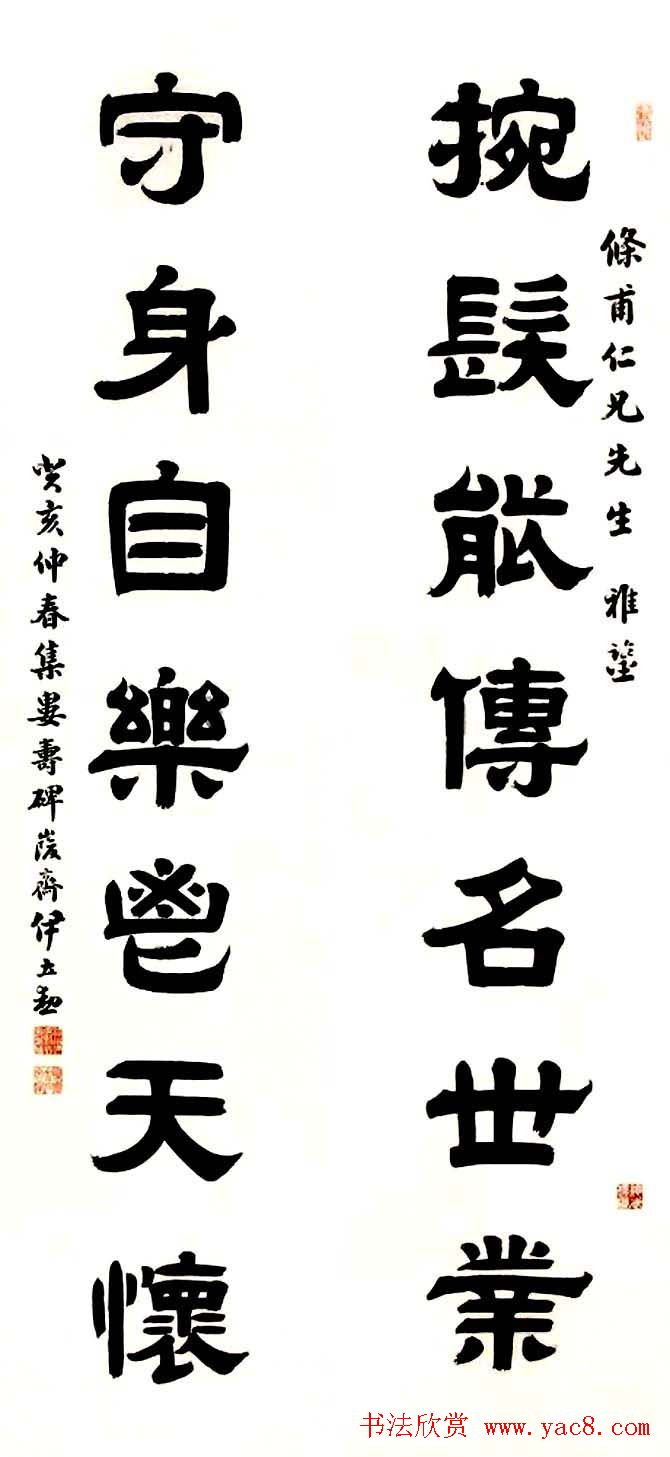 條甫仁兄先生 雅鑒
捥髮能傳名世業
守身自樂鬯天懷
癸亥仲春集婁壽碑峻齋伊立勳
书法欣赏 www.yac8.com